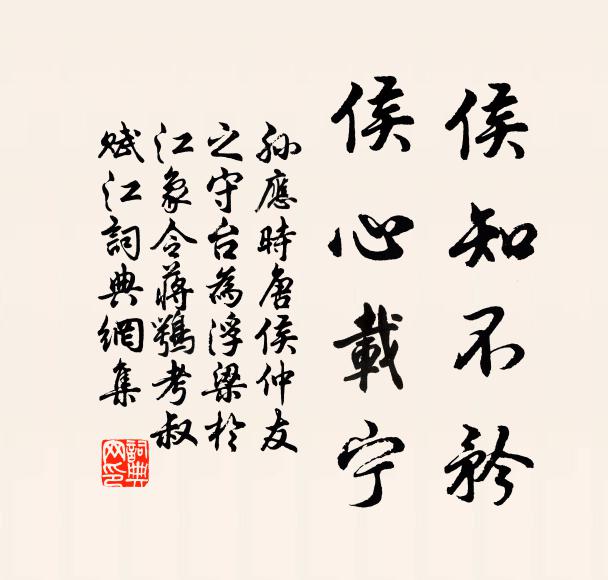 侯知不矜
侯心載宁
孙應時唐侯仲友
之守台為浮梁於
江象令蔣鶚考叔
赋江詞典網集
詞典网印